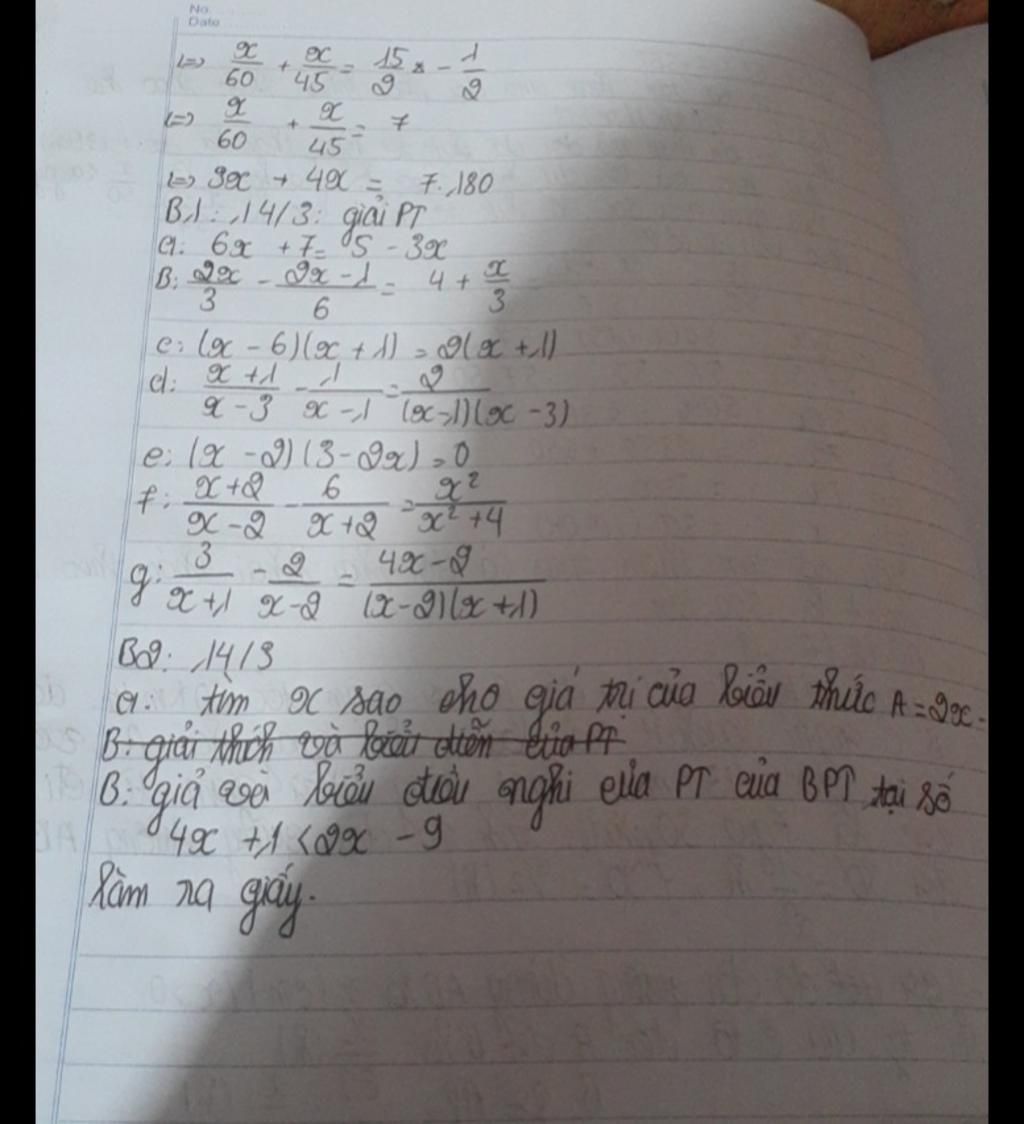 No.
Date
<=> x/60 + x/45 = 15/2 - 1/2
<=> x/60 + x/45 = 7
<=> 3x + 4x = 7.180
B1: 14/3: giải PT
a: 6x + 7 = 5 - 3x
B: 2x/3 - (2x-1)/6 = 4 + x/3
c: (x - 6)(x + 1) = 2(x + 1)
d: (x+1)/(x-3) - 1/(x-1) = 2/((x-1)(x-3))
e: (x - 2)(3 - 2x) = 0
f: (x+2)/(x-2) - 6/(x+2) = x²/(x²+4)
g: 3/(x+1) - 2/(x-2) = (4x-2)/((x-2)(x+1))
B2: 14/3
a: tìm x sao cho giá trị của biểu thức A = 2x -
B: giải thích và biểu diễn của PT
B: giả và biểu diễn nghi của PT của BPT tại số
4x + 1 < 2x - 9
làm ra giấy.